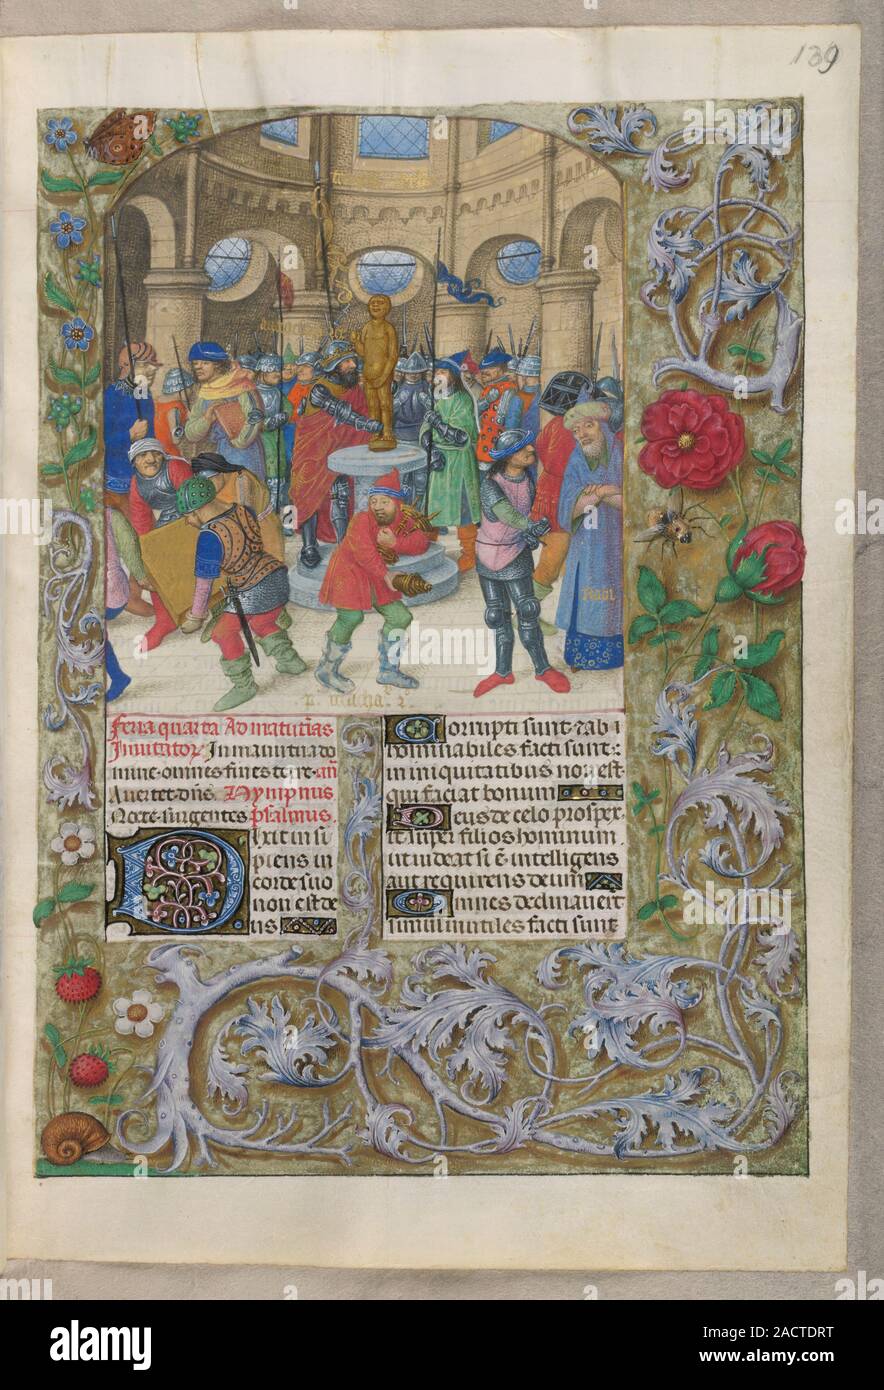 139
Raal
Feria quarta Ad matutinas
Invitator In manu tua do
mine omnes fines terre an
Avertet dns Hympnus
Nocte surgentes psalmus
Dixit insi
piens in
corde suo
non est de
us
Corrupti sunt z ab
hominabiles facti sunt:
in iniquitatibus non est
qui faciat bonum
Deus de celo prosper
it super filios hominum
ut videat si e intelligens
aut requirens deum
Omnes declinaverit
simul inutiles facti sunt
alamy
Image ID: 2ACTDRT
www.alamy.com